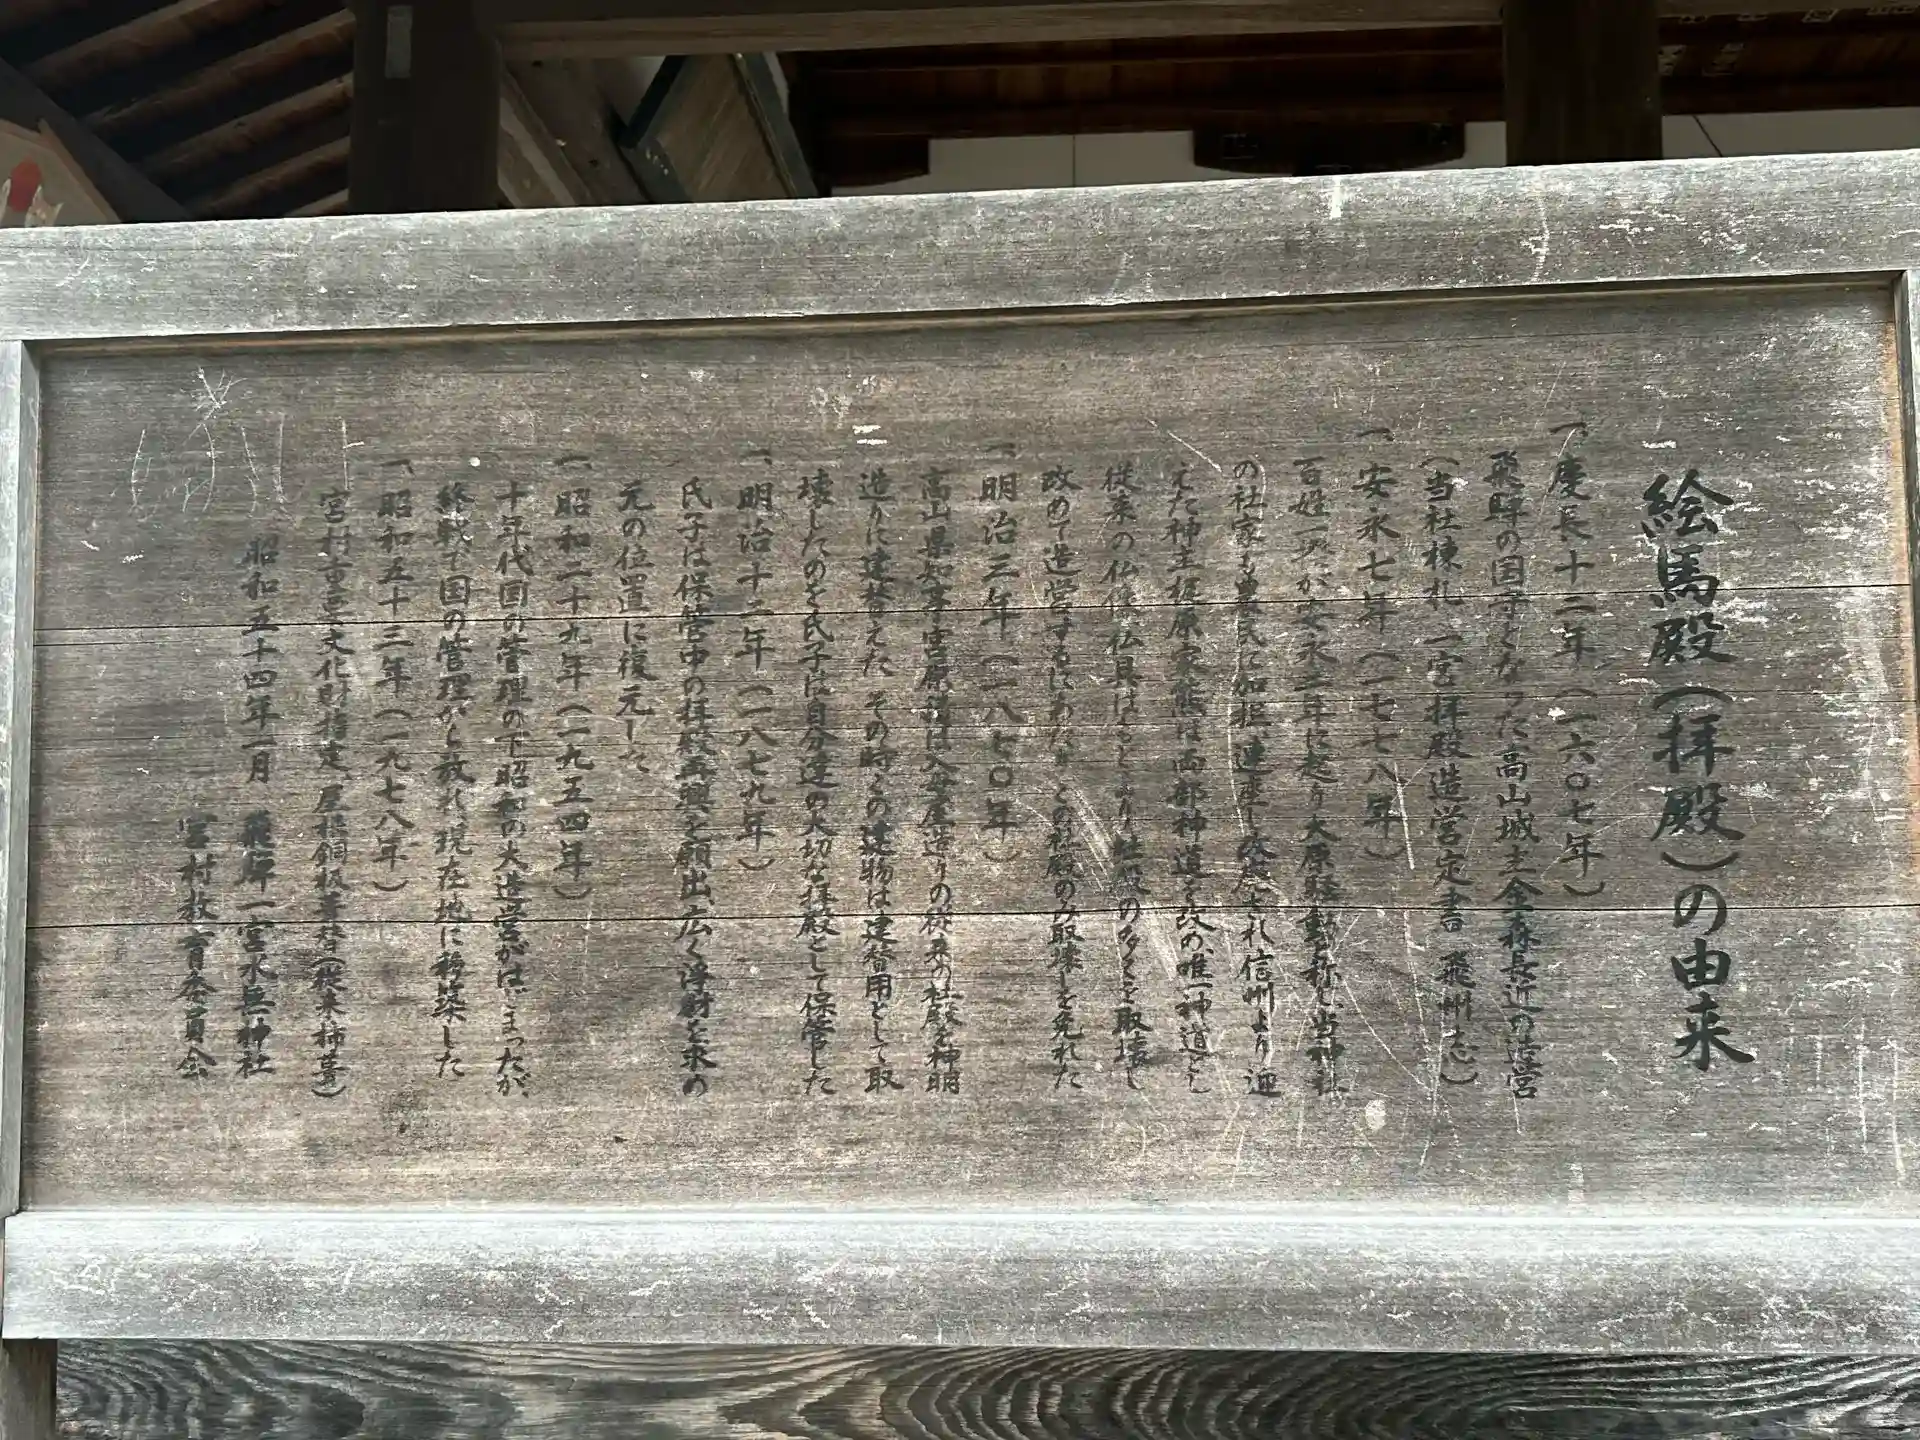 絵馬殿(拝殿)の由来
一、慶長十二年(一六〇七年)
飛騨の国守となった高山城主金森長近の造営
(当社棟札 一宮拝殿造営定書 飛州志)
一、安永七年(一七七八年)
百姓一揆が安永二年に起り大原騒動と称し当神社
の社家も農民に加担、連座し改廃され信州より迎
えた神主梶原家熊は両部神道を改め、唯一神道とし
従来の仏像仏具はもとより社殿の多くを取壊し
改めて造営するにあたり この社殿のみ取壊しを免れた
一、明治三年(一八七〇年)
高山県知事宮原積は入母屋造りの従来の社殿を神明
造りに建替えた その時この建物は建替用として取
壊したのを氏子は自分達の大切な拝殿として保管した
一、明治十二年(一八七九年)
氏子は保管中の拝殿再興を願出、広く浄財を求め
元の位置に復元した
一、昭和二十九年(一九五四年)
十年代国の管理の下昭和の大造営がはじまったが
終戦で国の管理から放れ現在地に移築した
一、昭和五十三年(一九七八年)
宮村重要文化財指定、屋根銅板葺替(従来柿葺)
昭和五十四年一月 飛騨一宮水無神社
宮村教育委員会